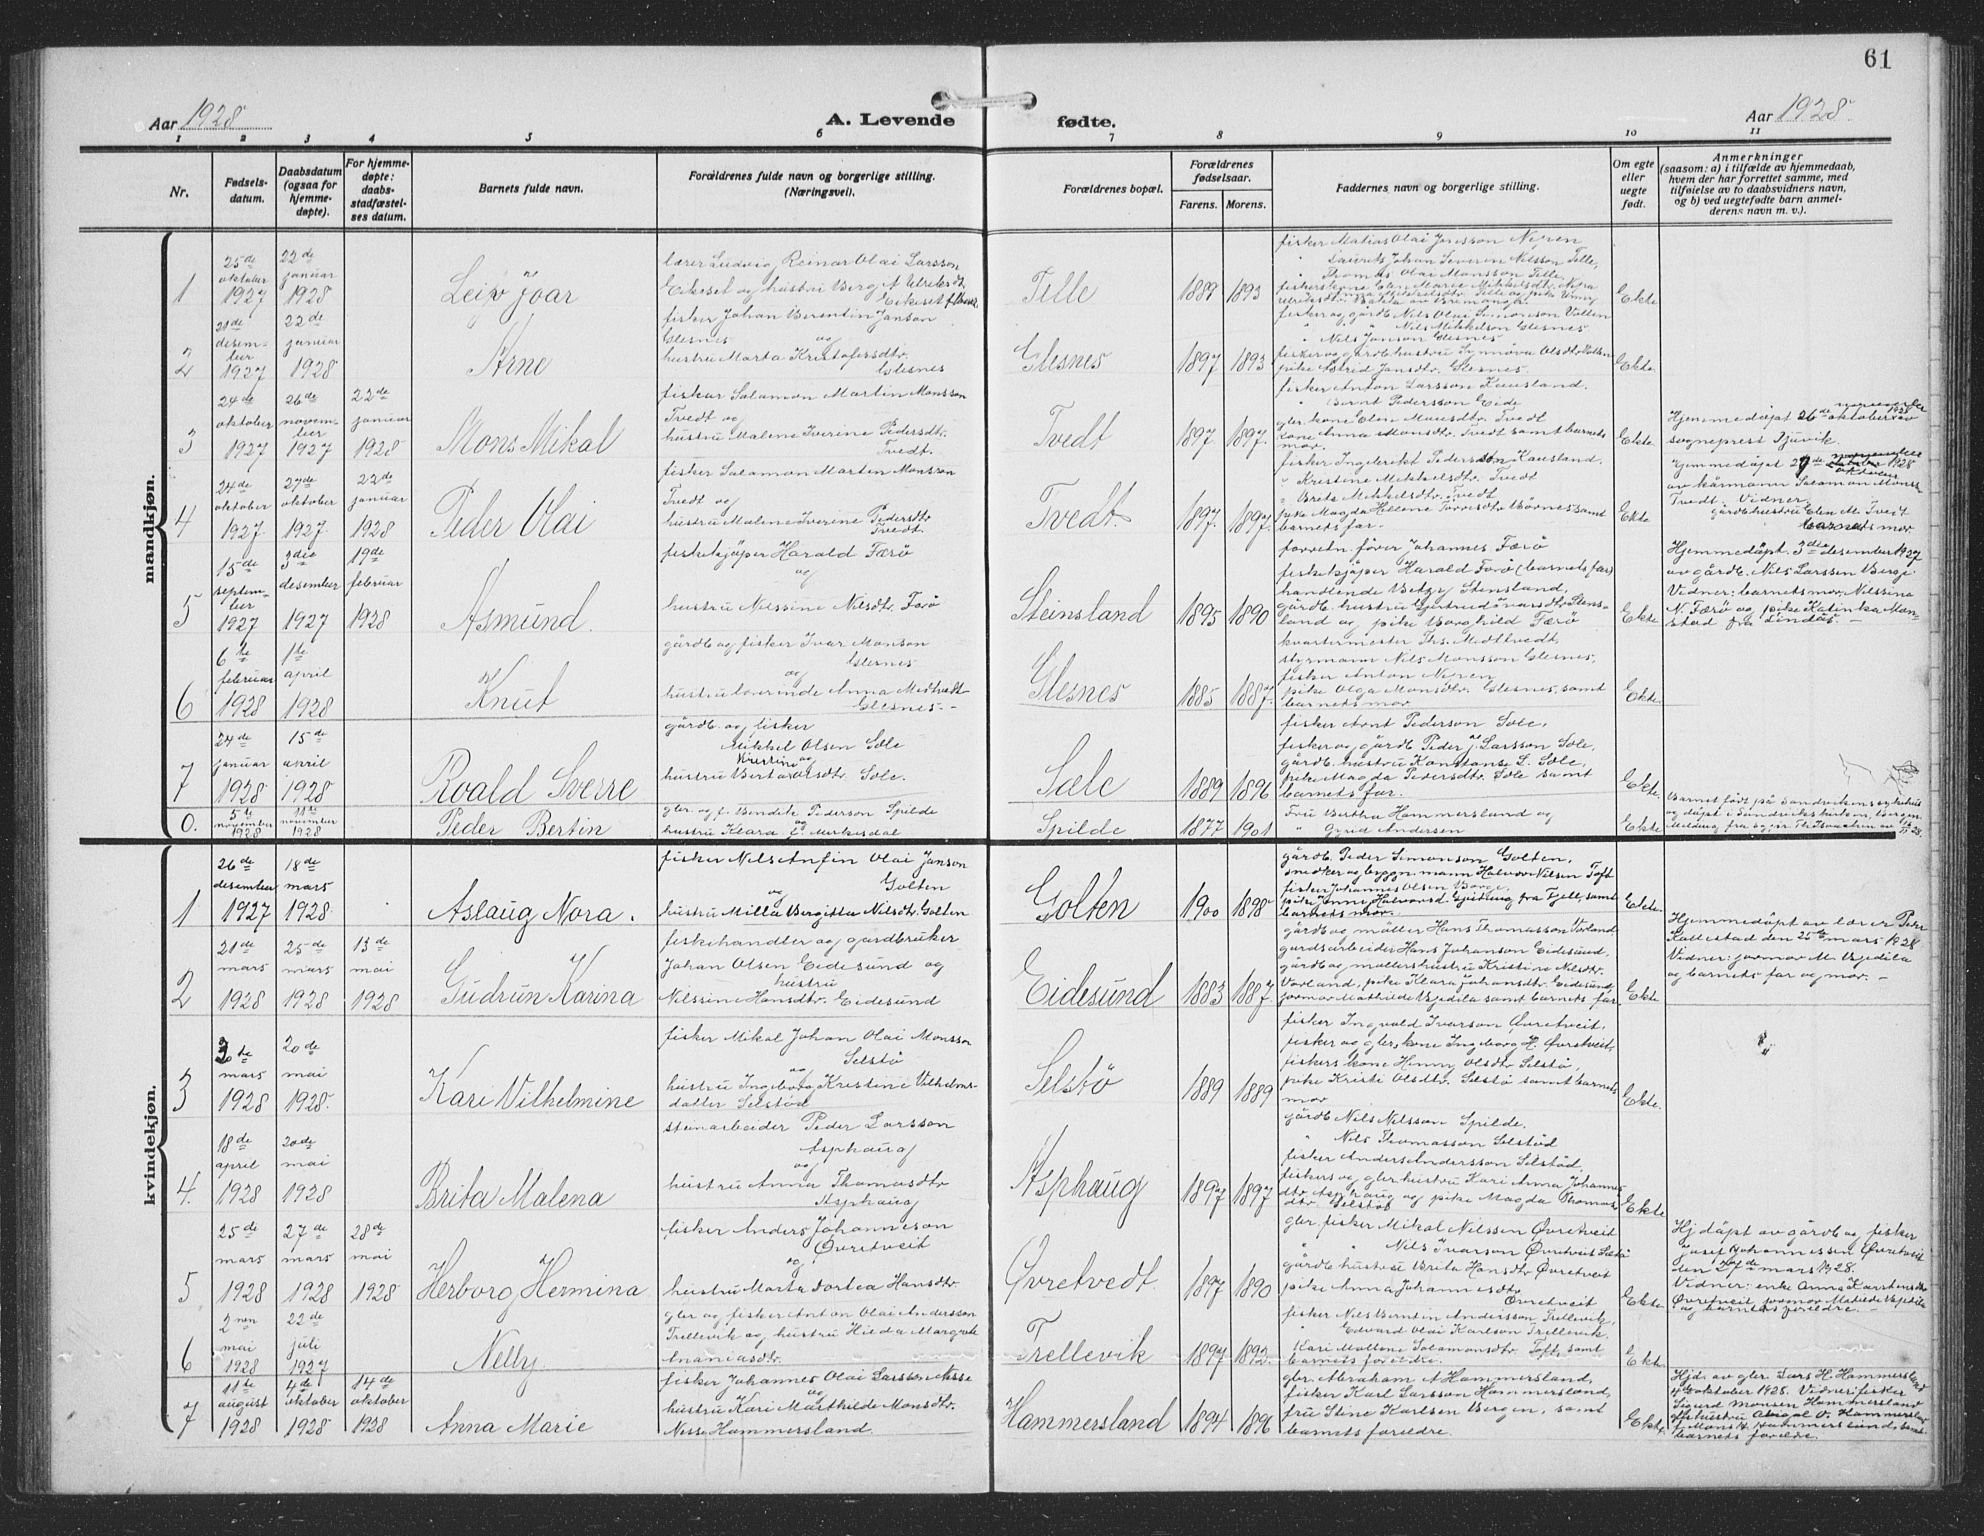 61
Aar 1928
A. Levende fødte.
Aar 1928.
1 2 3 4 5 6 7 8 9 10 11
Nr.
Fødsels-
datum.
Daabsdatum
(ogsaa for
hjemme-
døpte).
For hjemme-
døpte:
daabs-
stadfæstel-
ses datum.
Barnets fulde navn.
Forældrenes fulde navn og borgerlige stilling.
(Næringsvei).
Forældrenes bopæl.
Forældrenes
fødselsaar.
Farens. Morens.
Faddernes navn og borgerlige stilling.
Om egte
eller
uegte
født.
Anmerkninger
(saasom: a) i tilfælde av hjemmedaab,
hvem der har forrettet samme, med
tilføielse av to daabsvidners navn,
og b) ved uegtefødte barn anmel-
derens navn m. v.).
mandkjøn.
1
25de
oktober
1927
22de
januar
1928
Leiv Joar
lærer Ludvig Reinar Olai Larsson
Eikeset og hustru Bergit
Tille
1889 1893
fisker Matias Olai Jonsson Nipen
" Laurits Johan Severin Nilsson Tille,
" Thomas Olai Monsson Tille,
Ekte
2
21de
desem-
ber
1927
22de
januar
1928
Arne
fisker Johan Berentin Janson
Glesnes og
hustru Marta Kristofersdtr.
Glesnes
Glesnes
1897 1893
fisker og gårdb. Nils Olai Simonson Vallen
" " Nils Mikkelson Glesnes
" Nils Janson Glesnes
pike Astrid Jansdtr. Glesnes.
Ekte.
3
24de
oktober
1927
26de
novem-
ber
1927
22de
januar
1928
Mons Mikal
fisker Salomon Martin Monsson
Tvedt og
hustru Malene Iverine Pedersdtr.
Tvedt.
Tvedt
1897. 1897.
fisker Anton Larsson Kausland.
" Bernt Pedersson Eide
gbr. kone Elen Monsdtr. Tvedt
kone Anna Monsdtr. Tvedt samt barnets
mor.
Ekte
Hjemmedøpt 26de oktober av
sogneprest Djuvik.
4
24de
oktober
1927
27de
oktober
1927
22de
januar
1928
Peder Olai
fisker Salamon Marten Monsson
Tvedt og
hustru Malene Iverene Pedersdtr
Tvedt.
Tvedt.
1897. 1897.
fisker Ingebrikt Pederson Kausland.
" Kristine Mikkelsdtr. Tvedt
" Brita Mikkelsdtr. Tvedt
barnets far.
Ekte
Hjemmedøpt 27de
av kårmann Salamon Monss.
Tvedt. Vidner:
gårdb. hustru Elen M. Tveit
barnets mor
5
15de
septem-
ber
1927
3die
desember
1927
19de
februar
1928
Asmund.
fiskekjøper Harald Færø
og
hustru Nilssine Nilsdtr. Færø
Steinsland
1895 1890
forretn. fører Johannes Færø
fiskekjøper Harald Færø (barnets far)
handlende Betzy Stensland,
gårdb. hustru Gjertrud Ivarsdtr. Stens-
land og pike Borghild Færø
Ekte
Hjemmedøpt. 3die desember 1927
av gårdb. Nils Larssen Berge
Vidner: barnets mor, Nilssina
N. Færø og pike Katinka Mon-
stad fra Lindås.
6
6te
februar
1928
1te
april
1928
Knut
gårdb og fisker Ivar Monson
Glesnes
og
hustru Severinde Anna Medtvedt
Glesnes
Glesnes
1885 1887.
kvartermester Ths. Midttvedt,
styrmann Nils Monsson Glesnes,
fisker Anton Nipen
pike Olga Monsdtr. Glesnes, samt
barnets mor
Ekte.
7
24de
januar
1928
15de
april
1928
Roald Sverre
gårdb. og fisker
Mikkel Olsen Sæle
og
hustru Berta Kristine Olsdtr. Sæle.
Sæle
1889 1896
fisker Arnt Pederson Sæle,
fisker og gårdb Peder J. Larsson Sæle,
gårdb. hustru Konstanse L. Sæle,
pike Magda Pedersdtr. Sæle samt
barnets far.
Ekte.
0.
5te
november
1928
11te
november
1928
Peder Bertin
gbr. og f. Bendik Pederson Spilde
og
hustru Klara f. Mirkesdal
Spilde
1877 1901
Fru Bertha Hammersland og
" Gyrid Andersen
Ekte
Barnet født på Sandvikens sykehus
og døpt i Sandvikskirken, Bergen
kvindekjøn.
1
26de
desember
1927
18de
mars
1928
Aslaug Nora.
fisker Nils Anfin Olai Janson
og Golten
hustru Milla Bergitta Nilsdtr. Golten
Golten
1900 1898
gårdb. Peder Simonson Golten,
snekker og byggn. mann Halvor Nilsen Toft
fisker Johannes Olsen Børge,
barnets mor.
Ekte.
2
21de
mars
1928
25de
mars
1928
13de
mai
1928
Gudrun Karina
fiskehandler og gårdbruker
Johan Olsen Eidesund og
hustru
Nilssine Hansdtr. Eidesund
Eidesund
1883 1887.
gårdb og møller Hans Thomasson Vorland
gårdsarbeider Hans Johanson Eidesund,
gårdb og møllers hustru Kristine Nilsdtr.
Vorland, pike Klara Johansdtr. Eidesund,
jormor Mathilde Vjedila samt barnets far
Ekte.
Hjemmedøpt av lærer Peder
Kallestad den 25de mars 1928
Vidner: jormor M. Vjedila
og barnets far og mor.
3
mars
1928
20de
mai
1928.
Kari Vilhelmine
fisker Mikal Johan Olai Monsson
Selstø
og
hustru Ingeborg Kristine Vilhelms-
datter Selstød
Selstø
1889 1889
fisker Ingvald Ivarson Øvretveit,
fisker og gbr, kone Ingeborg H. Øvretveit,
fiskers kone Hinny Olsdtr Selstø,
pike Kristi Olsdtr. Selstø samt barnets
mor
Ekte.
4.
18de
april
1928
20de
mai
1928
Brita Malena
stenarbeider Peder Larsson
Asphaug
og
hustru Anna Thomasdtr
Asphaug
Asphaug
1897 1897
gårdb Nils Nilsson Spilde,
" Nils Thomasson Selstød
fisker Anders Andersson Selstød
fiskers og gbr hustru Kari Anna Johannes
dtr. Asphaug og pike Magda Thomas
dtr. Selstø
Ekte
5
25de
mars
1928
27de
mars
1928
28de
mai
1928
Herborg Hermina
fisker Anders Johanneson
Øvretveit
og
hustru Marta Dortea Hansdtr.
Øvretvedt
1897 1890
gbr. fisker Mikal Nilssen Øvretveit
" " Nils Ivarson Øvretveit Selstø
gårdb hustru Brita Hansdtr Øvretveit
pike Anna Johannesdtr
Øvretveit
Ekte
Hj døpt av gårdb og fisker
Josef Johannessen Øvretveit
den 27de mars 1928.
Vidner: enke Anna Karstensdtr
Øvretveit, jormor Matilde Vjedila
og barnets forældre.
6
2nen
mai
1928
22de
juli
1927
Nelly.
gbr og fisker Anton Olai Andersson
Trellevik og hustru Hilda Margrete
Ananiasdtr.
Trellevik
1897 1892
fisker Nils Berntin Andersson Trellevik,
" Edvard Olai Karlson Trellevik,
Kari Mallene Salamonsdtr Toft, samt
barnets foreldre.
Ekt.
7
11te
august
1928
4de
oktober
1928
14de
oktober
1928
Anna Marie
fisker Johannes Olai Larssen Nesse
og
hustru Kari Marthilde Monsdtr.
Nesse Hammersland.
Hammersland
1894 1896
gbr. Abraham A Hammersland,
fisker Karl Larsson Hammersland,
fru Stine Karlsen Bergen, samt
barnets foreldre.
Ekte.
Hjd. av gbr. Lars H. Hammersland
4de oktober 1928. Vidner: fisker
Sigurd Monsen Hammersland
barnets foreldre.